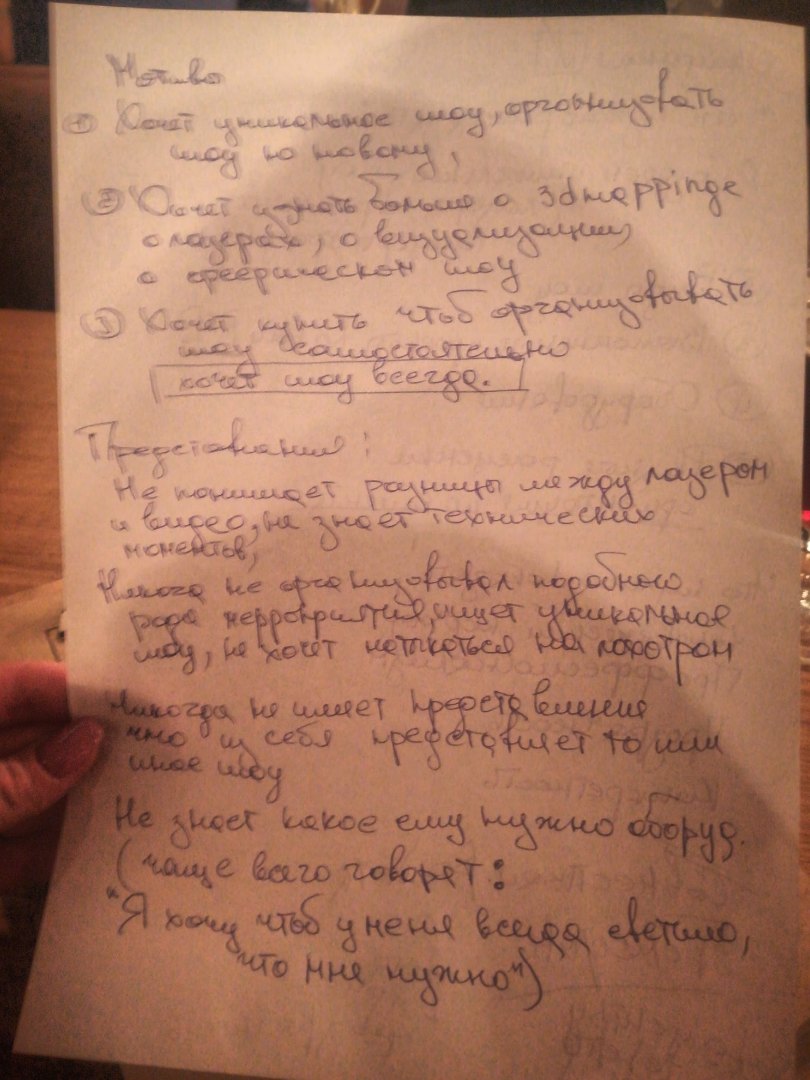 Мотивы
① Хочет уникальное шоу, организовать
шоу по новому,
② Хочет узнать больше о 3dmappinge
о лазерах, о визуализации,
о феерическом шоу
③ Хочет купить чтоб организовывать
шоу самостоятельно
хочет шоу всегда.
Представления:
Не понимает разницы между лазером
и видео, не знает технических
моментов,
Никога не организовывал подобного
рода мерроприятия, ищет уникальное
шоу, не хочет натыкаться на лохотрон
Никогда не имеет представления
что из себя представляет то или
иное шоу
Не знает какое ему нужно оборуд.
(чаще всего говорят:
"Я хочу чтоб у меня всегда светило,
что мне нужно")